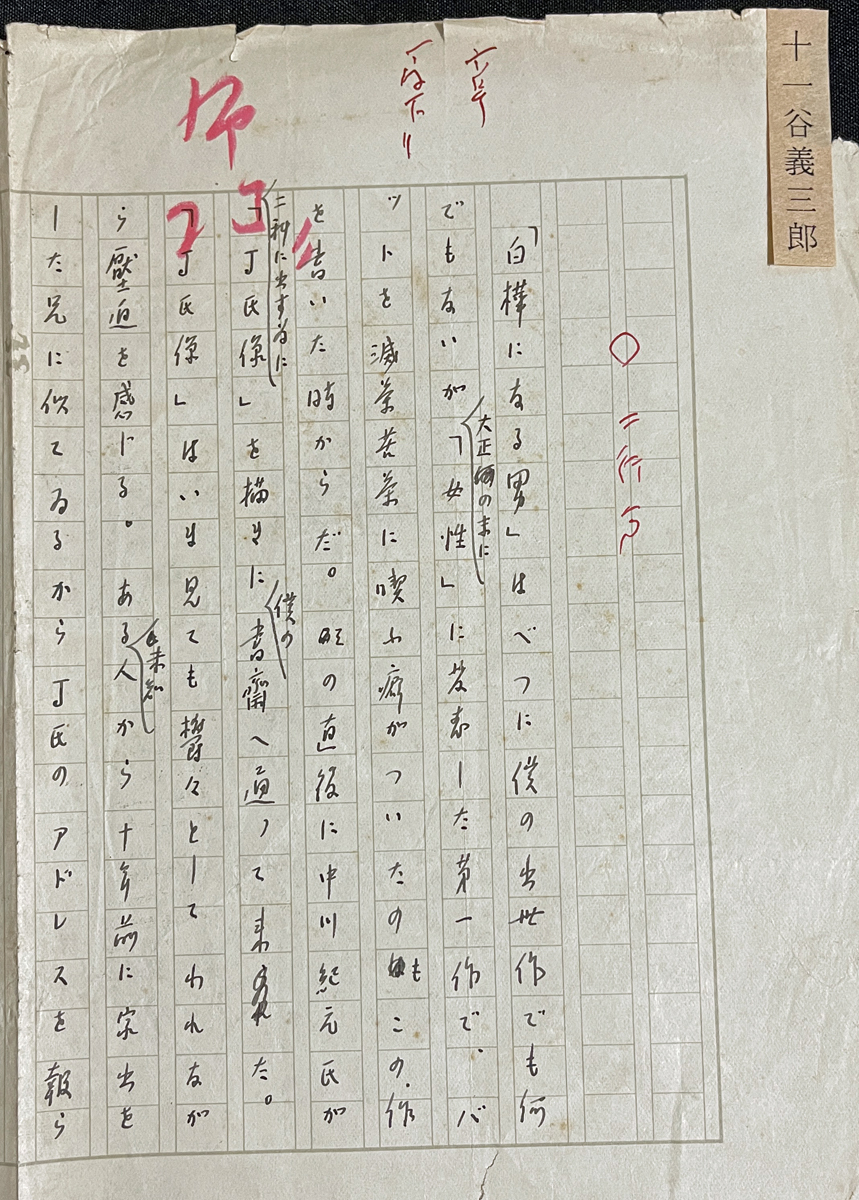 十一谷義三郎
六号
二行
「白樺になる男」はべつに僕の出世作でも何
大正の末に
でもないが「女性」に発表した第一作で、バ
ットを滅茶苦茶に喫ふ癖がついたのもこの作
を書いた時からだ。の直後に中川紀元氏が
二科に出す為に
僕の
「J氏像」を描きに書齋へ通って来られた。
「J氏像」はいま見ても欝々としてわれなが
未知
ら壓迫を感じる。ある人から十年前に家出を
した兄に似てゐるからJ氏のアドレスを報ら